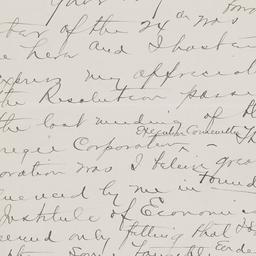 your
ter of the 24th was
here and I hasten
express my appreciation
the Resolution passed
the last meeting of the
Executive Committee
negie Corporation
oration was I believe grea
uenced by me in found
Institute of Economi
seemed only fitting that